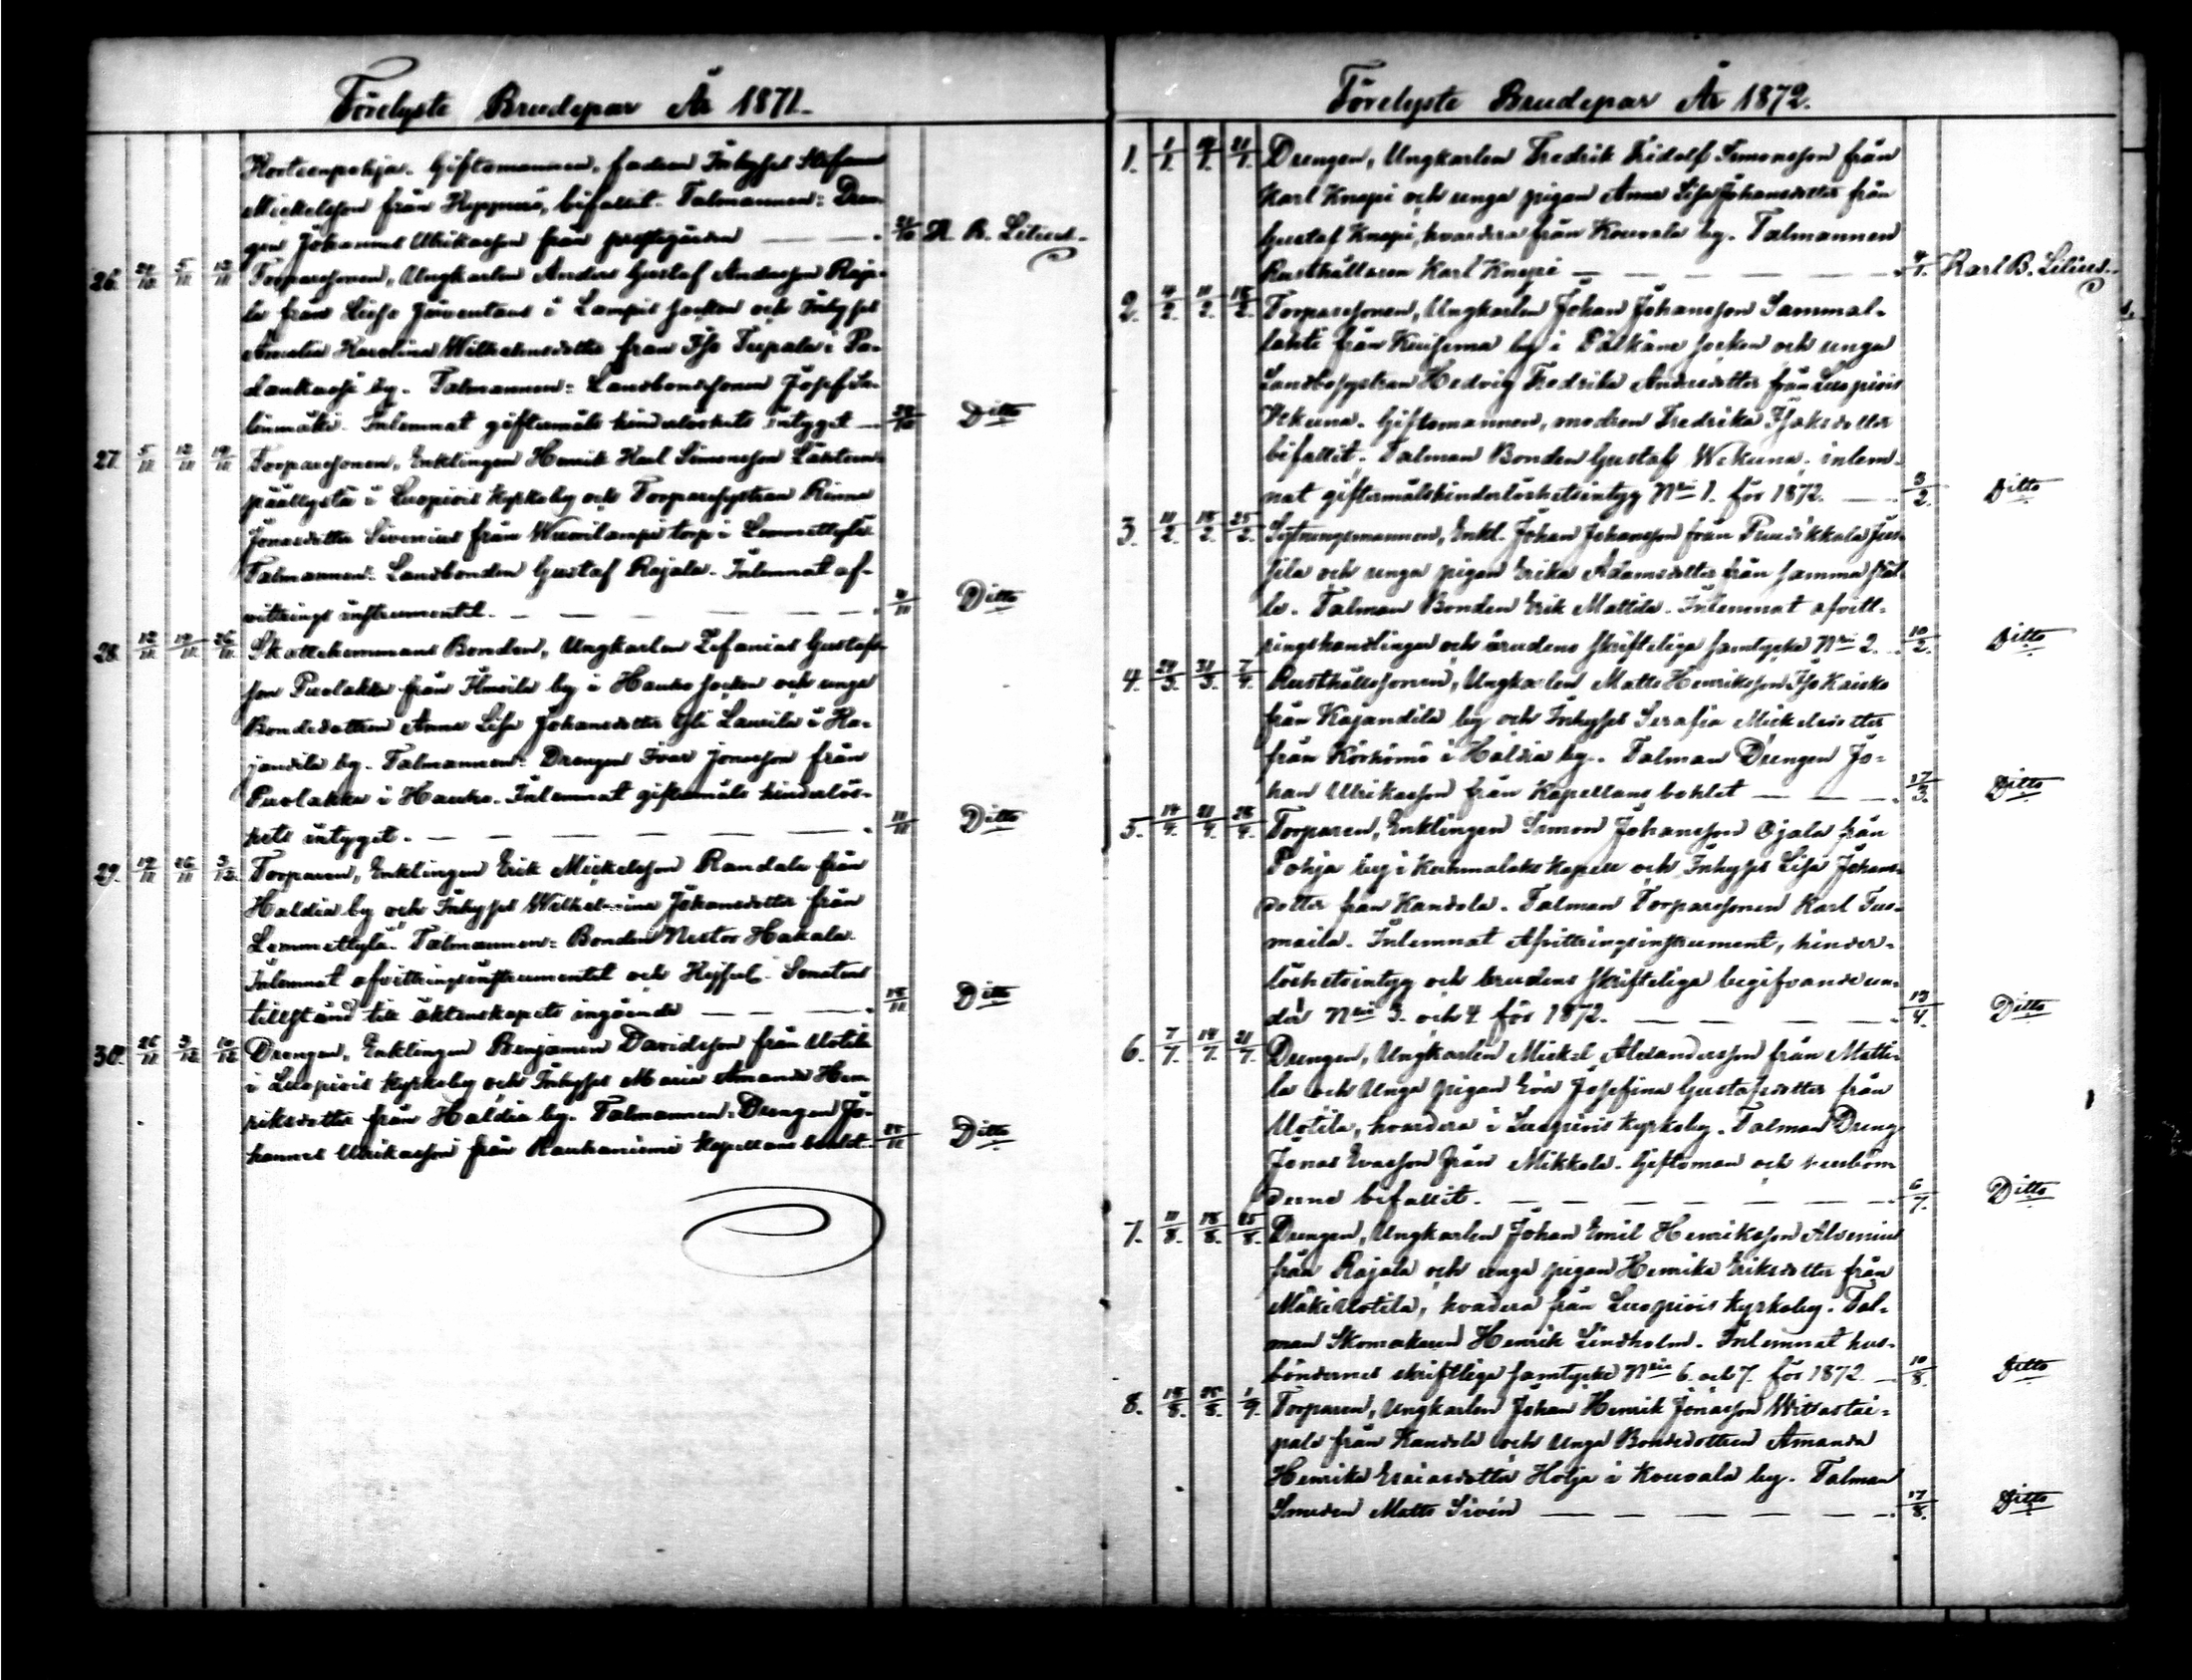 Förelyste Brudepar År 1871.
Kortteenpohja. Giftomannen, fadren Inhyses Stefan
Mickelsson från Kyppärö, bifallit. Talmannen: Dren-
gen Johannes Ulrikasson från prestgården — — K. B. Lilius.
26. Torparesonen, Ungkarlen Anders Gustaf Andersson Raja-
la från Liehe Juventaus i Lampis socken och Inhyses
Amalia Karolina Wilhelmsdotter från Iso Teipala i Pa-
dankoski by. Talmannen: Landbondesonen Josef
linmäki. Inlemnat giftermåls hinderlöshets intyget — Ditto
27. 5/11 12/11 19/11 Torparesonen, Enklingen Henrik Karl Simonsson Lähteen-
päällystä i Luopiois Kyrkoby och Torparedystran Rinna
Jonasdotter Sivenius från Wuorilampi torp i Lemmettylä
Talmannen: Landbonden Gustaf Rajala. Inlemnat af-
vittrings instrumentet. — — — Ditto
28. 12/11 19/11 26/11 Skattehemmans Bonden, Ungkarlen Zefanias Gustafs-
son Puolakka från Ilmoila by i Hauho socken och unga
Bondedottren Anna Lisa Johansdotter Yli Laurila i Ka-
jandila by. Talmannen: Drengen Ivar Jonasson från
Puolakka i Hauho. Inlemnat giftermåls hinderlös-
hets intyget. — — — Ditto
29. 19/11 26/11 3/12 Torparen, Enklingen Erik Mickelsson Randala från
Haldia by och Inhyses Wilhelmina Johansdotter från
Lemmettylä. Talmannen: Bonden Nestor Hakala.
Inlemnat afvittringsinstrumentet och Kejserl. Senatens
tillstånd till äktenskapets ingående — — 18/11 Ditto
30. 26/11 3/12 10/12 Drengen, Enklingen Benjamin Davidsson från Uotila
i Luopiois Kyrkoby och Inhyses Maria Amanda Hen-
riksdotter från Haldia by. Talmannen: Drengen Jo-
hannes Ulrikasson från Rauhaniemi Kapellans bohlet. 25/11 Ditto
Förelyste Brudepar År 1872.
1. Drengen, Ungkarlen Fredrik Fridolf Simonsson från
Karl Knapi och unga pigan Anna Lisa Johansdotter från
Gustaf Knapi, hvardera från Kouvala by. Talmannen
Rusthållaren Karl Knapi — — — Karl B. Lilius.
2. 4/2 11/2 18/2 Torparesonen, Ungkarlen Johan Johansson Sammal-
lahti från Kuisema by i Pälkäne socken och unga
Landbosystran Hedvig Fredrika Andersdotter från Luopiois
Wekuna. Giftomannen, modren Fredrika Isaksdotter
bifallit. Talman Bonden Gustaf Wekuna. inlem-
nat giftermålshinderlöshetsintyg Nris 1. för 1872. — 3/2 Ditto
3. 11/2 18/2 25/2 Sytningsmannen, Enkl. Johan Johansson från Puutikkala Jus-
sila och unga pigan Erika Adamsdotter från samma stäl-
le. Talman Bonden Erik Mattila. Inlemnat afvitt-
ringshandlingar och brudens skrifteliga samtycke Nris 2. 10/2 Ditto
4. 24/3 31/3 7/4 Rusthållssonen, Ungkarlen Matts Henriksson Iso Kaisko
från Kajandila by och Inhyses Serafia Mickelsdotter
från Körkömö i Haldia by. Talman Drengen Jo-
han Ulrikasson från Kapellans bohlet — — — 17/3 Ditto
5. 14/4 21/4 28/4 Torparen, Enklingen Simon Johansson Ojala från
Pohja by i Kuhmalahti Kapell och Inhyses Lisa Johans-
dotter från Kandola. Talman Torparesonen Karl Tus-
maila. Inlemnat Afvittringsinstrument, hinder-
löshetsintyg och brudens skrifteliga begifvande un-
der Nris 3. och 4. för 1872. — — — 13/4 Ditto
6. 7/7 14/7 21/7 Drengen, Ungkarlen Mickel Alexandersson från Matti-
la och Unga pigan Eva Josefina Gustafsdotter från
Uotila, hvardera i Luopiois Kyrkoby. Talman Dreng
Jonas Evasson från Mikkola. Giftoman och husbön-
derne bifallit. — — — 6/7 Ditto
7. 11/8 18/8 25/8 Drengen, Ungkarlen Johan Emil Henriksson Alvenius
från Rajala och unga pigan Henrika Eriksdotter från
Mäki Uotila, hvardera från Luopiois Kyrkoby. Tal-
man Skomakaren Henrik Lindholm. Inlemnat hus-
böndernes skriftliga samtycke Nris 6. och 7. för 1872 — 10/8 Ditto
8. 18/8 25/8 1/9 Torparen, Ungkarlen Johan Henrik Jonasson Witsastai-
pale från Kandola och Unga Bondedottren Amanda
Henrika Esaiasdotter Hölja i Kouvala by. Talman
Smeden Matts Sivén — — — 17/8 Ditto